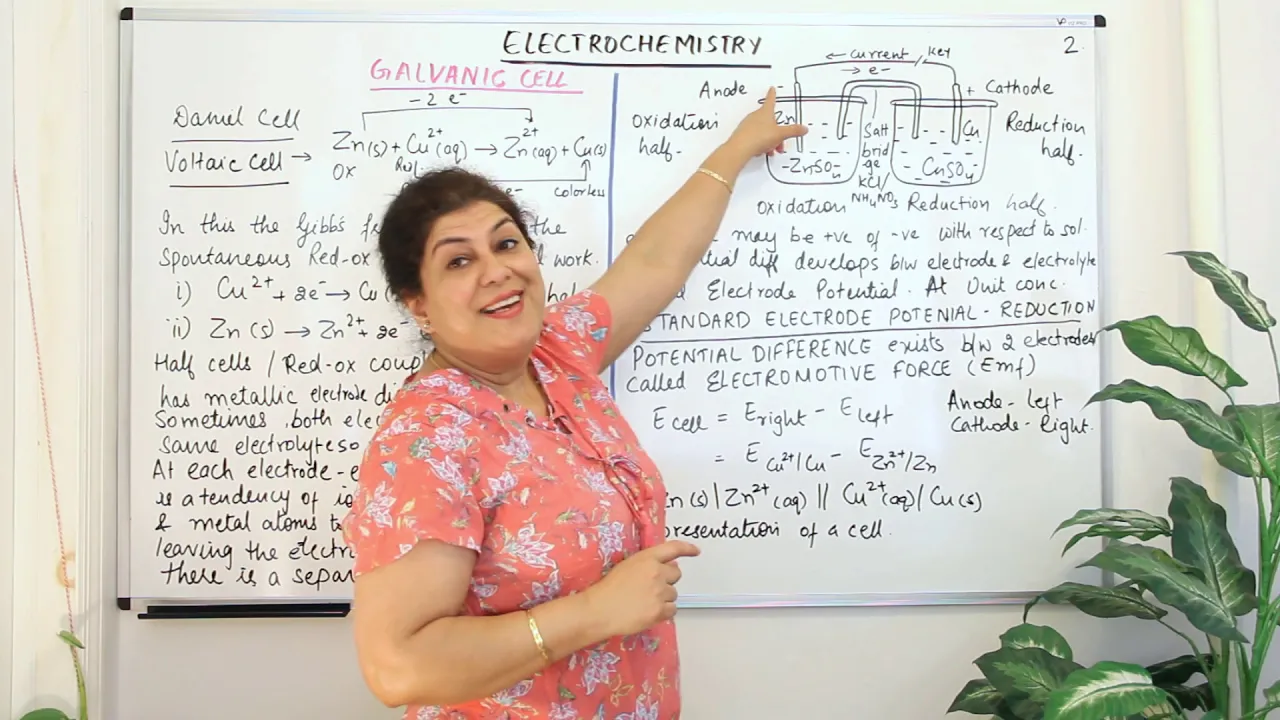 ELECTROCHEMISTRY
2.
GALVANIC CELL
Daniel Cell
Voltaic Cell →
- 2 e-
Zn(s) + Cu2+(aq) → Zn2+(aq) + Cu(s)
OX
e-
colorless
In this the Gibb's the
Spontaneous Red-ox work.
i) Cu2+ + 2e- →
ii) Zn (s) → Zn2+ + 2e-
Half cells / Red-ox
has metallic electrode
Sometimes, both
same
At each electrode -
is a tendency of
& metal atoms
leaving the
there is a
← current / Key
→ e-
Anode -
+ Cathode
Oxidation
half.
Zn
Salt
bridge
KCl/
NH4NO3
Cu
Reduction
half.
ZnSO4
CuSO4
Oxidation Reduction half.
may be +ve of -ve with respect to sol.
diff develops b/w electrode & electrolyte
Electrode Potential. At Unit conc.
STANDARD ELECTRODE POTENIAL - REDUCTION
POTENTIAL DIFFERENCE exists b/w 2 electrodes
called ELECTROMOTIVE FORCE (Emf)
E cell = E right - E left
Anode - left
Cathode - Right.
= E Cu2+/Cu - E Zn2+/Zn
Zn2+ (aq) || Cu2+(aq) | Cu(s)
of a cell.